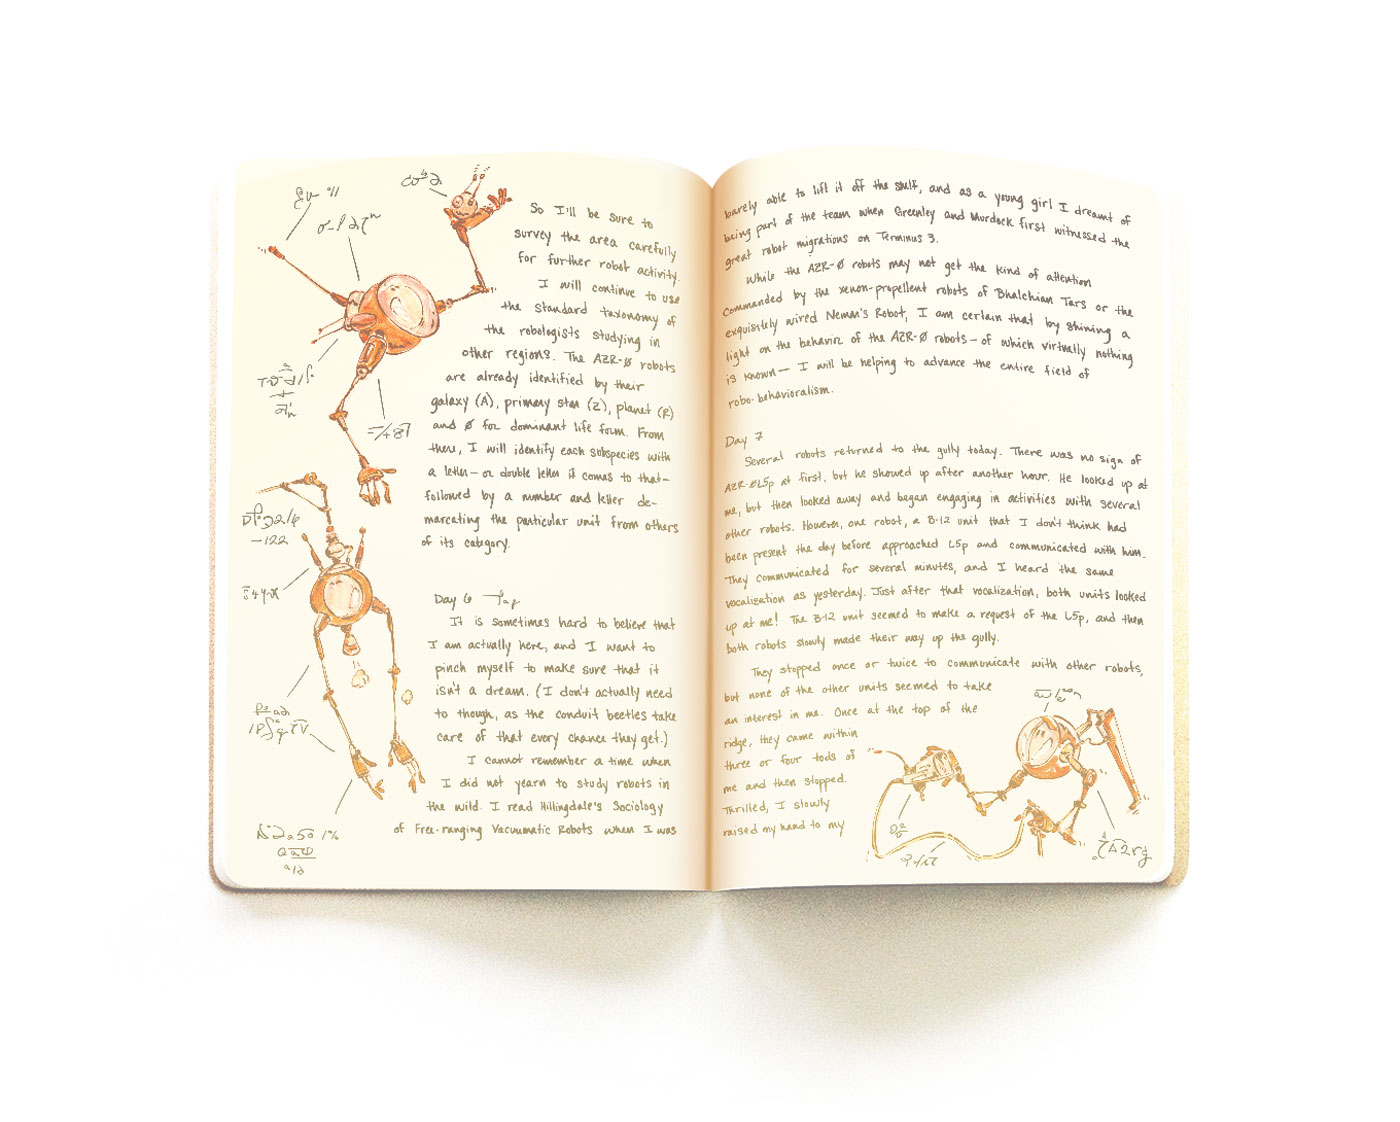 So I'll be sure to
survey the area carefully
for further robot activity.
I will continue to use
the standard taxonomy of
the robologists studying in
other regions. The AZR-Ø robots
are already identified by their
galaxy (A), primary star (Z), planet (R)
and Ø for dominant life form. From
there, I will identify each subspecies with
a letter — or double letter if comes to that —
followed by a number and letter de-
marcating the particular unit from others
of its category.
Day 6
It is sometimes hard to believe that
I am actually here, and I want to
pinch myself to make sure that it
isn't a dream. (I don't actually need
to though, as the conduit beetles take
care of that every chance they get.)
I cannot remember a time when
I did not yearn to study robots in
the wild. I read Hillingdale's Sociology
of Free-ranging Vacuumatic Robots when I was
barely able to lift it off the shelf, and as a young girl I dreamt of
being part of the team when Greenley and Murdock first witnessed the
great robot migrations on Terminus 3.
While the AZR-Ø robots may not get the kind of attention
commanded by the xenon-propellent robots of Bhalchian Tars or the
exquisitely wired Neman's Robot, I am certain that by shining a
light on the behavior of the AZR-Ø robots — of which virtually nothing
is known — I will be helping to advance the entire field of
robo-behavioralism.
Day 7
Several robots returned to the gully today. There was no sign of
AZR-ØL5p at first, but he showed up after another hour. He looked up at
me, but then looked away and began engaging in activities with several
other robots. However, one robot, a B-12 unit that I don't think had
been present the day before approached L5p and communicated with him.
They communicated for several minutes, and I heard the same
vocalization as yesterday. Just after that vocalization, both units looked
up at me! The B-12 unit seemed to make a request of the L5p, and then
both robots slowly made their way up the gully.
They stopped once or twice to communicate with other robots,
but none of the other units seemed to take
an interest in me. Once at the top of the
ridge, they came within
three or four tods of
me and then stopped.
Thrilled, I slowly
raised my hand to my